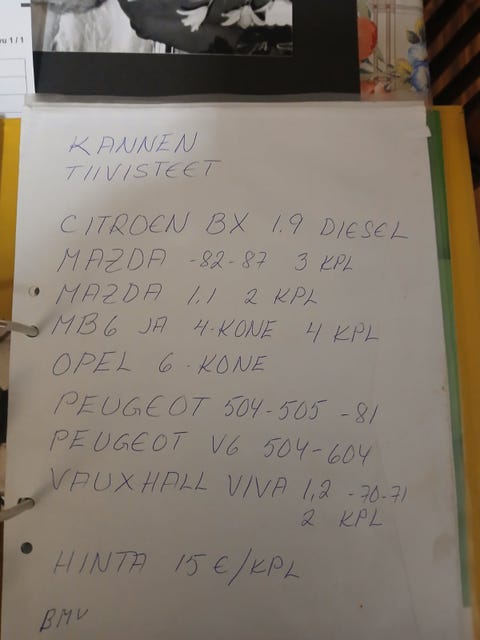 1 / 1
KANNEN
TIIVISTEET
CITROEN BX 1.9 DIESEL
MAZDA -82-87 3 KPL
MAZDA 1,1 2 KPL
MB6 JA 4-KONE 4 KPL
OPEL 6-KONE
PEUGEOT 504-505 -81
PEUGEOT V6 504-604
VAUXHALL VIVA 1,2 -70-71
2 KPL
HINTA 15 €/KPL
BMV